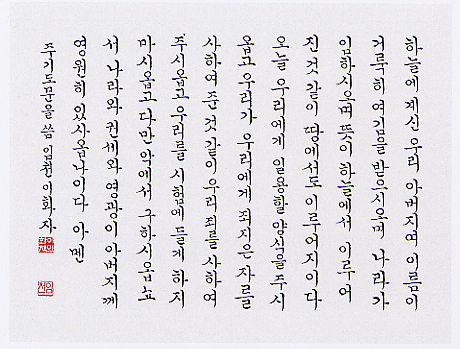 하늘에 계신 우리 아버지여 이름이
거룩히 여김을 받으시오며 나라가
임하시오며 뜻이 하늘에서 이루어
진 것 같이 땅에서도 이루어지이다
오늘 우리에게 일용할 양식을 주시
옵고 우리가 우리에게 죄지은 자를
사하여 준 것 같이 우리 죄를 사하여
주시옵고 우리를 시험에 들게 하지
마시옵고 다만 악에서 구하시옵쇼
서 나라와 권세와 영광이 아버지께
영원히 있사옵나이다 아멘
주기도문을 씀 임천 이화자